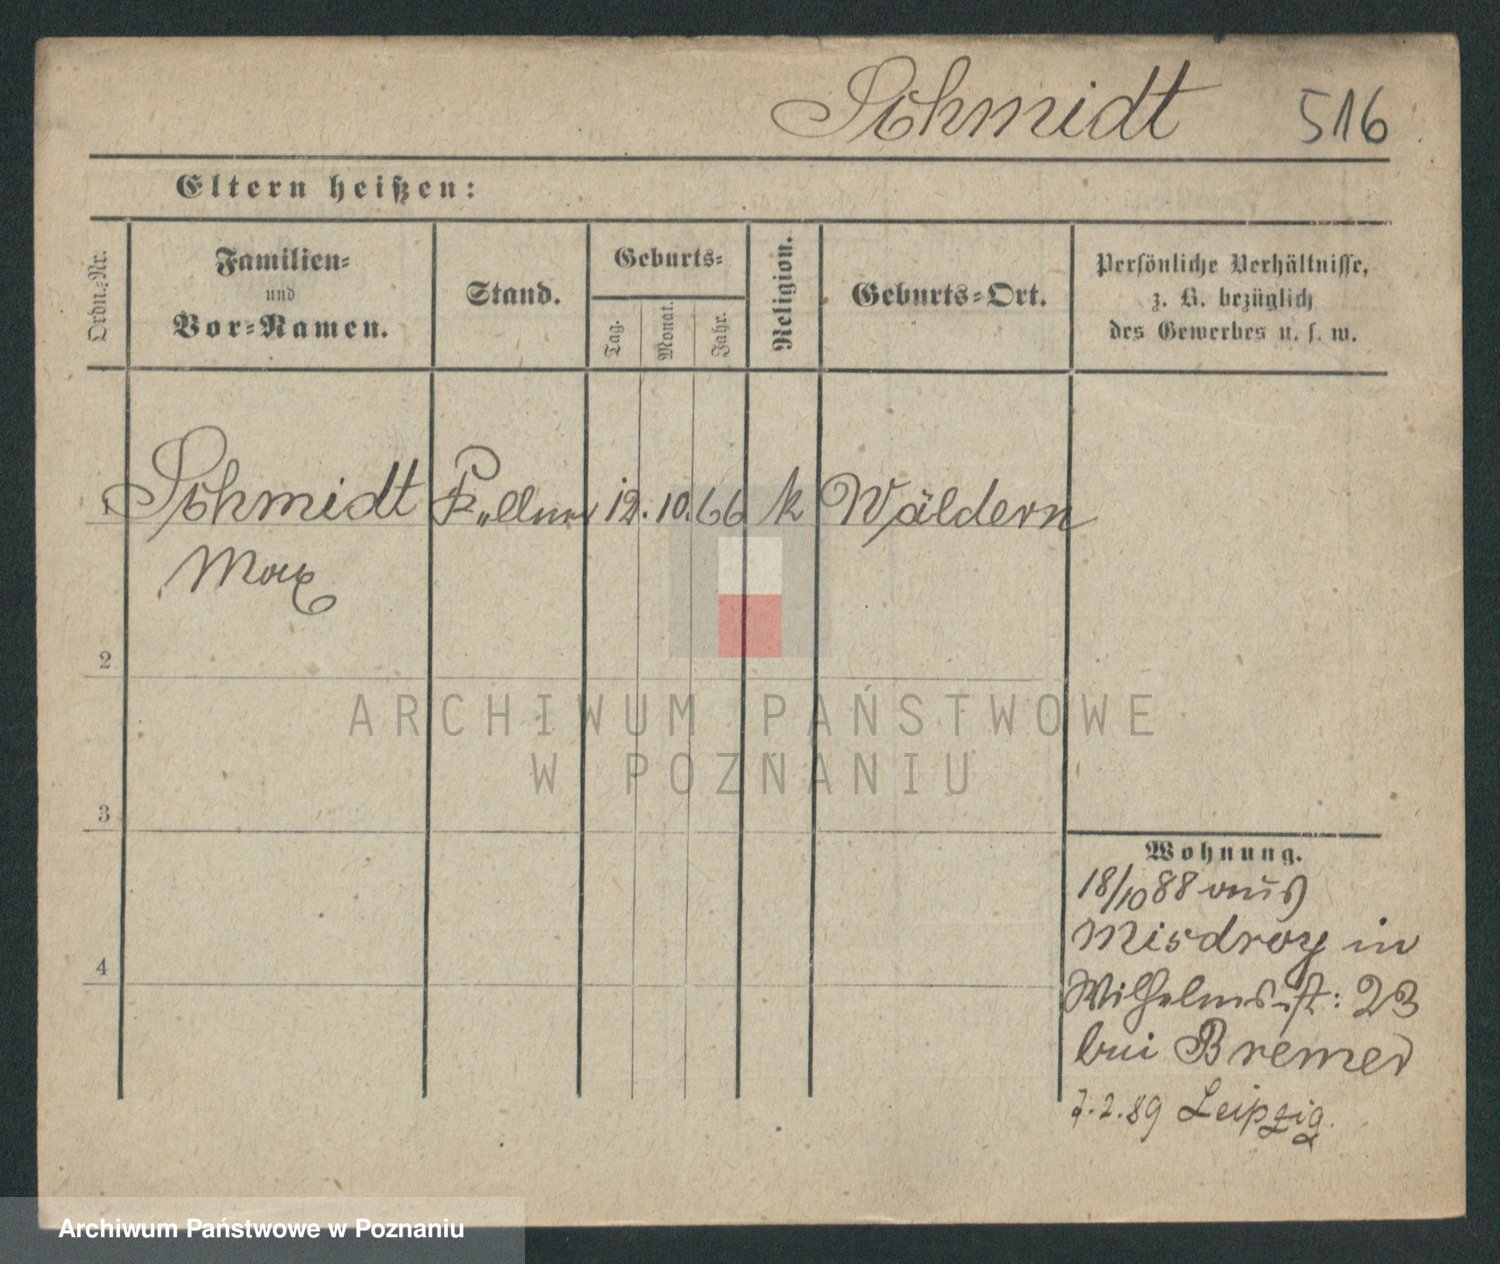 Schmidt 516
Eltern heißen:
Ordn.-Nr.
Familien-
und
Vor-Namen.
Stand.
Geburts-
Tag.
Monat.
Jahr.
Religion.
Geburts-Ort.
Persönliche Verhältnisse,
z. B. bezüglich
des Gewerbes u. s. w.
1 Schmidt Kellner 12. 10. 66 k Wäldern
Max
2
3
4
Wohnung.
18/10 88 aus
Misdroy in
Wilhelmsst: 23
bei Bremer
7.2.89 Leipzig.
ARCHIWUM PAŃSTWOWE
W POZNANIU
Archiwum Państwowe w Poznaniu